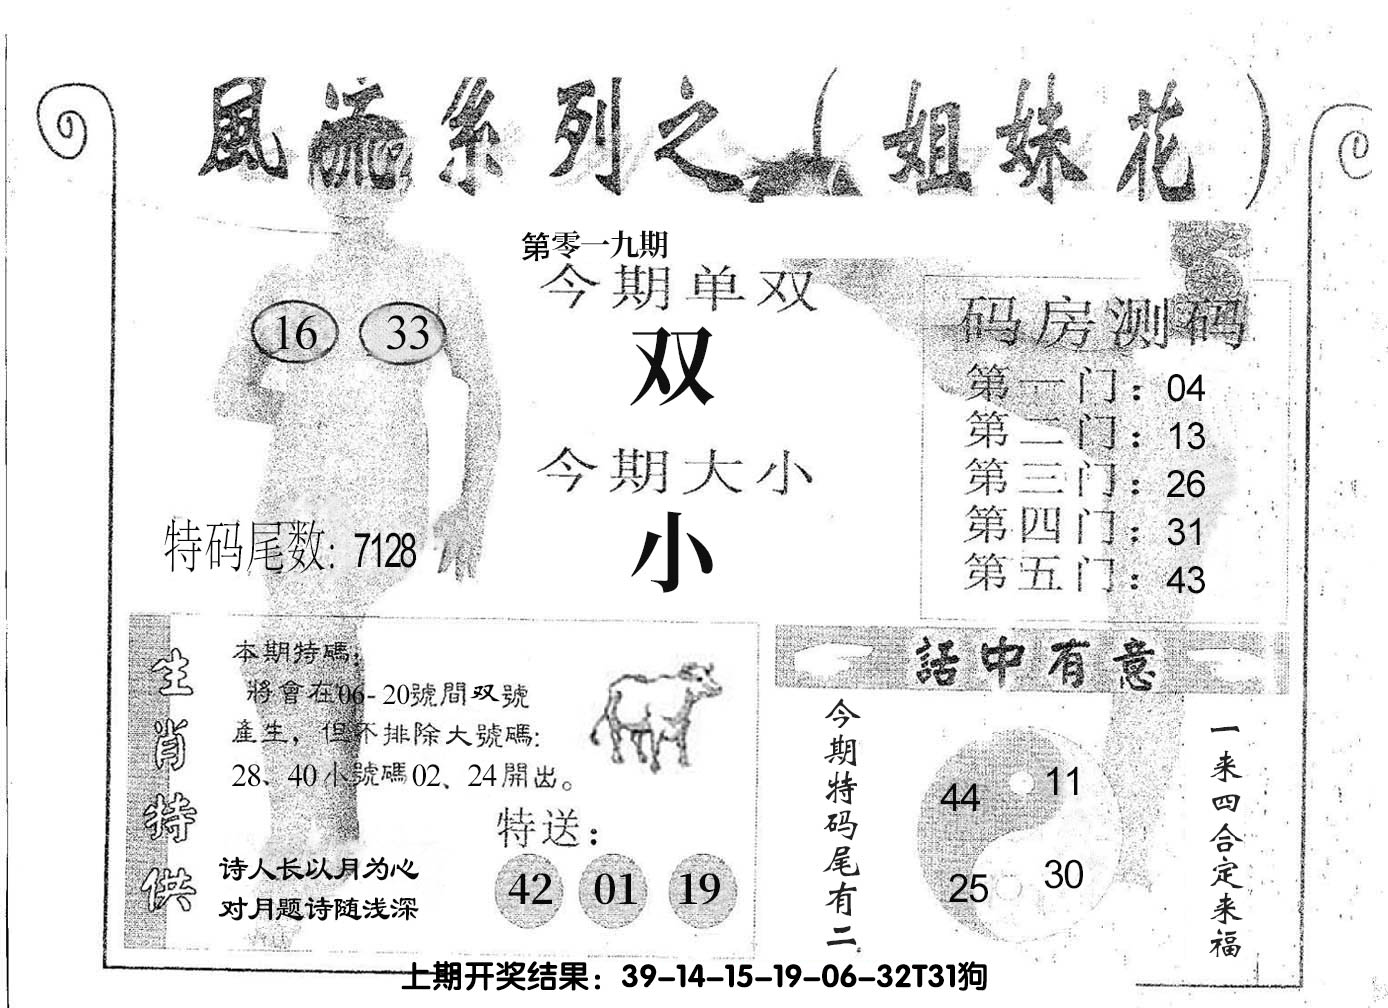 風流系列之（姐妹花）
第零一九期
今期单双
双
今期大小
小
16 33
特码尾数: 7128
码房测码
第一门：04
第二门：13
第三门：26
第四门：31
第五门：43
生肖特供
本期特碼，
將會在06-20號間双號
產生，但不排除大號碼:
28、40小號碼02、24開出。
特送：
42 01 19
诗人长以月为心
对月题诗随浅深
話中有意
今期特码尾有二
44 11
25 30
一来四合定来福
上期开奖结果：39-14-15-19-06-32T31狗